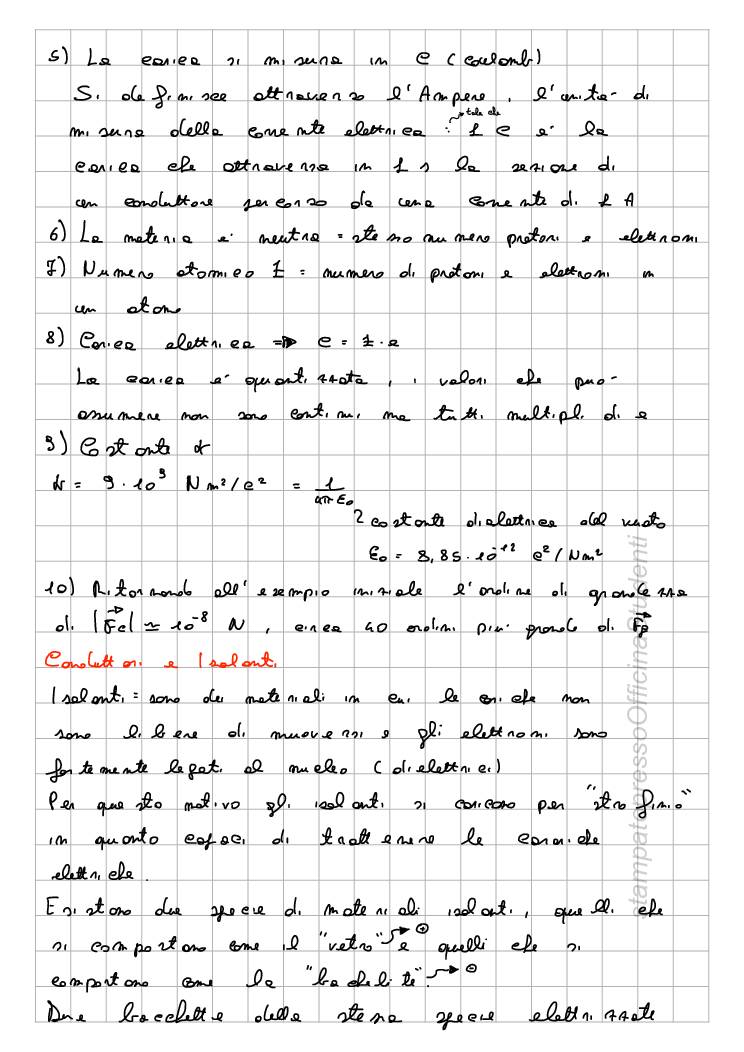 5) La carica si misura in C (coulomb)
Si definisce attraverso l'Ampere, l'unita- di
misura della corrente elettrica : tale che 1 C e' la
carica che attraversa in 1 s la sezione di
un conduttore percorso da una corrente di 1 A
6) La materia e' neutra = stesso numero protoni e elettroni
7) Numero atomico Z = numero di protoni e elettroni in
un atomo
8) Carica elettrica => C = Z · e
La carica e' quantizzata, i valori che puo-
assumere non sono continui ma tutti multipli di e
9) Costante k
k = 9 · 10⁹ N m²/C² = 1/4πε₀
costante dielettrica del vuoto
ε₀ = 8,85 · 10⁻¹² C²/Nm²
10) Ritornando all'esempio iniziale l'ordine di grandezza
di |Fe| ≃ 10⁻⁸ N, circa 40 ordini piu' grande di Fg
Conduttori e Isolanti
Isolanti = sono dei materiali in cui le cariche non
sono libere di muoversi e gli elettroni sono
fortemente legati al nucleo (dielettrici)
Per questo motivo gli isolanti si caricano per "strofinio"
in quanto capaci di trattenere le cariche
elettriche.
Esistono due specie di materiali isolanti, quelli che
si comportano come il "vetro" → ⊕ e quelli che si
comportano come la "bachelite". → ⊖
Due bacchette della stessa specie elettrizzate
stampatopressoOfficinaStudenti